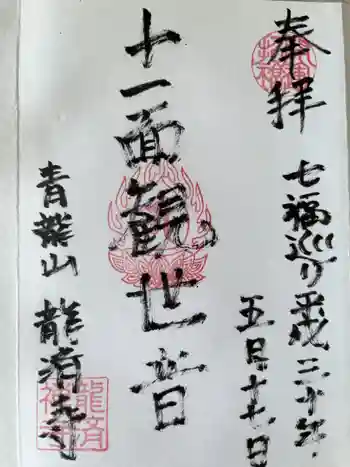 奉拝
七福巡り 平成三十年
五月十七日
十一面観世音
青葉山 龍済寺
龍済